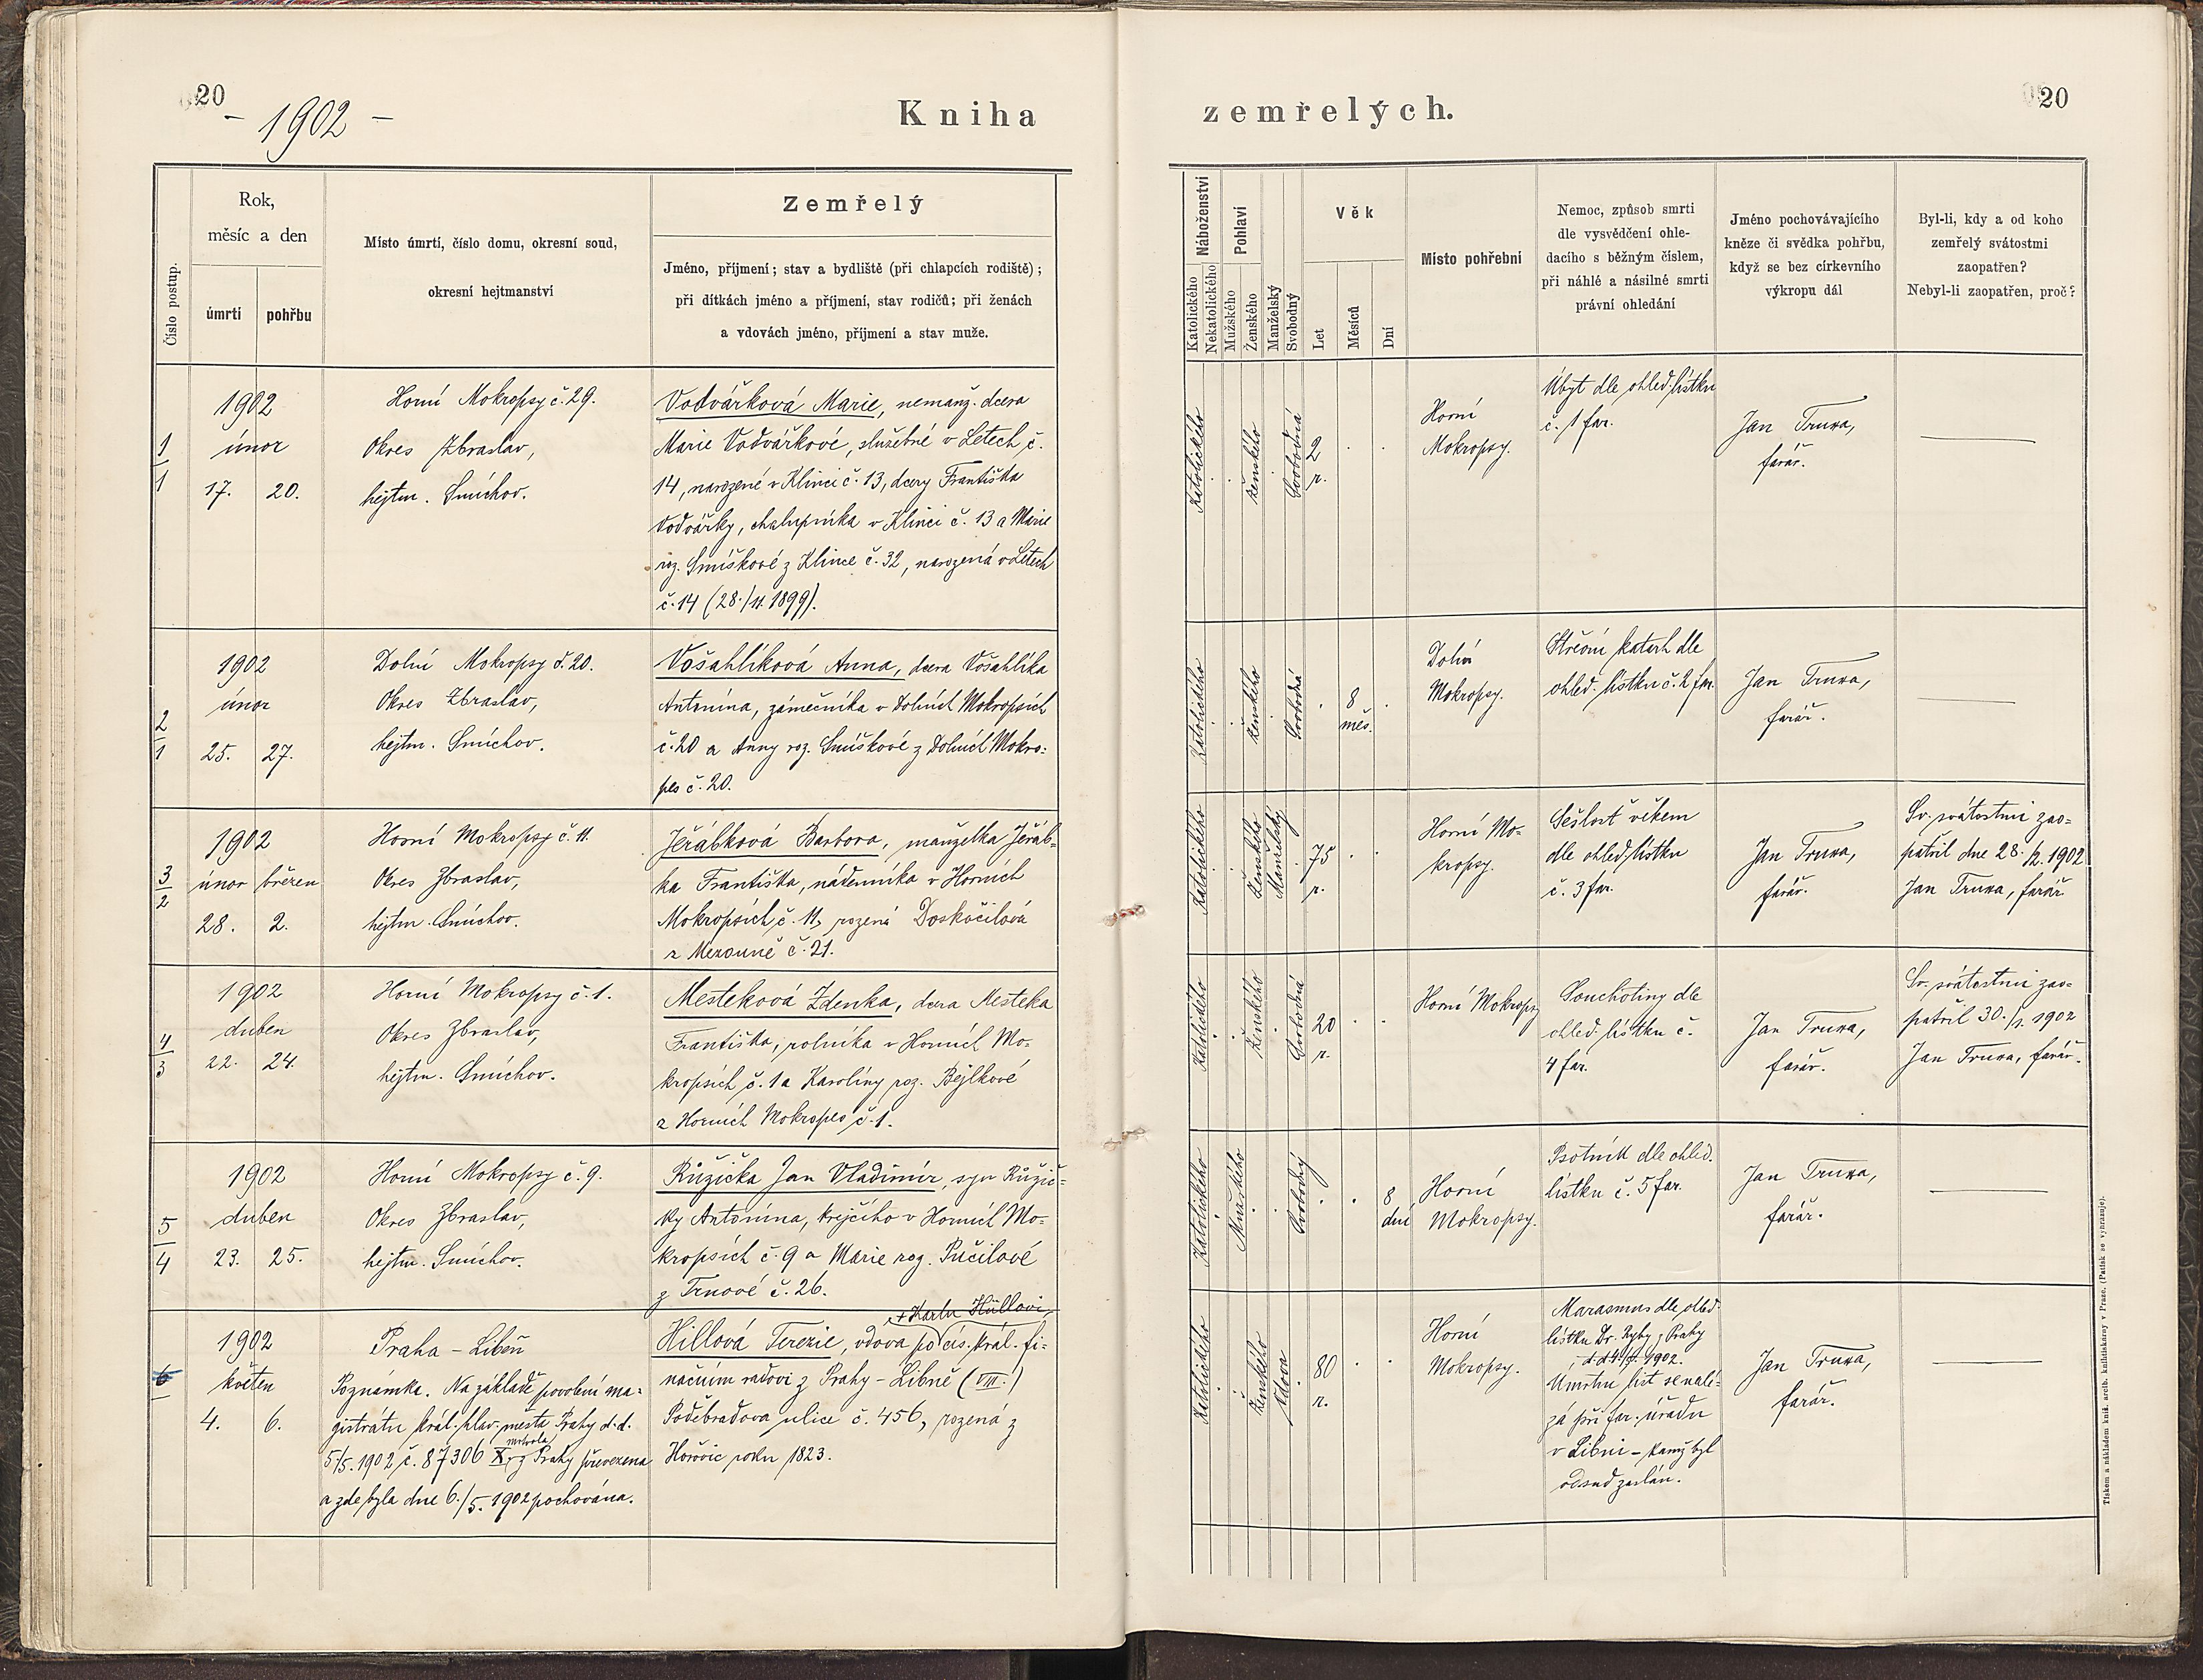 20
- 1902 -
Kniha
Číslo postup.
Rok,
měsíc a den
úmrtí
pohřbu
Místo úmrtí, číslo domu, okresní soud,
okresní hejtmanství
Zemřelý
Jméno, příjmení; stav a bydliště (při chlapcích rodiště);
při dítkách jméno a příjmení, stav rodičů; při ženách
a vdovách jméno, příjmení a stav muže.
1
1
1902
únor
17. 20.
Horní Mokropsy č. 29.
Okres Zbraslav,
hejtm. Smíchov.
Vodvářková Marie, nemanž. dcera
Marie Vodvářkové, služebné v Letech č.
14, narozené v Klinci č. 13, dcery Františka
Vodvářky, chalupníka v Klinci č. 13 a Marie
roz. Smíškové z Klince č. 32, narozená v Letech
č. 14 (28./11. 1899).
2
1
1902
únor
25. 27.
Dolní Mokropsy č. 20.
Okres Zbraslav,
hejtm. Smíchov.
Vošahlíková Anna, dcera Vošahlíka
Antonína, zámečníka v Dolních Mokropsích
č. 20 a Anny roz. Smíškové z Dolních Mokro-
pes č. 20.
3
2
1902
únor březen
28. 2.
Horní Mokropsy č. 11.
Okres Zbraslav,
hejtm. Smíchov.
Jeřábková Barbora, manželka Jeřáb-
ka Františka, nádenníka v Horních
Mokropsích č. 11, rozená Doskočilová
z Mezouně č. 21.
4
3
1902
duben
22. 24.
Horní Mokropsy č. 1.
Okres Zbraslav,
hejtm. Smíchov.
Mesteková Zdenka, dcera Mesteka
Františka, rolníka v Horních Mo-
kropsích č. 1 a Karolíny roz. Bejlkové
z Horních Mokropes č. 1.
5
4
1902
duben
23. 25.
Horní Mokropsy č. 9.
Okres Zbraslav,
hejtm. Smíchov.
Růžička Jan Vladimír, syn Růžič-
ky Antonína, krejčího v Horních Mo-
kropsích č. 9 a Marie roz. Pučilové
z Trnové č. 26.
6
1902
květen
4. 6.
Praha - Libeň
Poznámka. Na základě povolení ma-
gistrátu král. hlav. města Prahy d. d.
5/5. 1902 č. 87306 X. mrtvola z Prahy převezena
a zde byla dne 6./5. 1902 pochována.
+ Karlu Hüllovi,
Hillová Terezie, vdova po cís. král. fi-
nančním radovi z Prahy - Libně (VIII.)
Poděbradova ulice č. 456, rozená z
Hořovic roku 1823.
zemřelých.
20
Náboženství
Katolického
Nekatolického
Pohlaví
Mužského
Ženského
Manželský
Svobodný
Věk
Let
Měsíců
Dní
Místo pohřební
Nemoc, způsob smrti
dle vysvědčení ohle-
dacího s běžným číslem,
při náhlé a násilné smrti
právní ohledání
Jméno pochovávajícího
kněze či svědka pohřbu,
když se bez církevního
výkropu dál
Byl-li, kdy a od koho
zemřelý svátostmi
zaopatřen?
Nebyl-li zaopatřen, proč?
Katolického
ženského
Svobodná
2
r.
Horní
Mokropsy.
Úbyt dle ohled. lístku
č. 1 far.
Jan Truxa,
farář.
Katolického
ženského
Svobodná
8
měs.
Dolní
Mokropsy.
Střevní katarh dle
ohled. lístku č. 2 far.
Jan Truxa,
farář.
Katolického
Ženského
Manželský
75
r.
Horní Mo-
kropsy.
Sešlost věkem
dle ohled. lístku
č. 3 far.
Jan Truxa,
farář.
Sv. svátostmi zao-
patřil dne 28./2. 1902
Jan Truxa, farář
Katolického
Ženského
Svobodná
20
r.
Horní Mokropsy
Souchotiny dle
ohled. lístku č.
4 far.
Jan Truxa,
farář.
Sv. svátostmi zao-
patřil 30./1. 1902
Jan Truxa, farář.
Katolického
Mužského
Svobodný
8
dní
Horní
Mokropsy.
Psotník dle ohled.
lístku č. 5 far.
Jan Truxa,
farář.
Katolického
Ženského
Vdova
80
r.
Horní
Mokropsy.
Marasmus dle ohled.
lístku Dr. Ryby z Prahy
d. d. 4./5. 1902.
Úmrtní list se nalé-
zá při far. úřadu
v Libni - kamž byl
odsud zaslán.
Jan Truxa,
farář.
Tiskem a nákladem kníž. arcib. knihtiskárny v Praze. (Patisk se vyhrazuje).